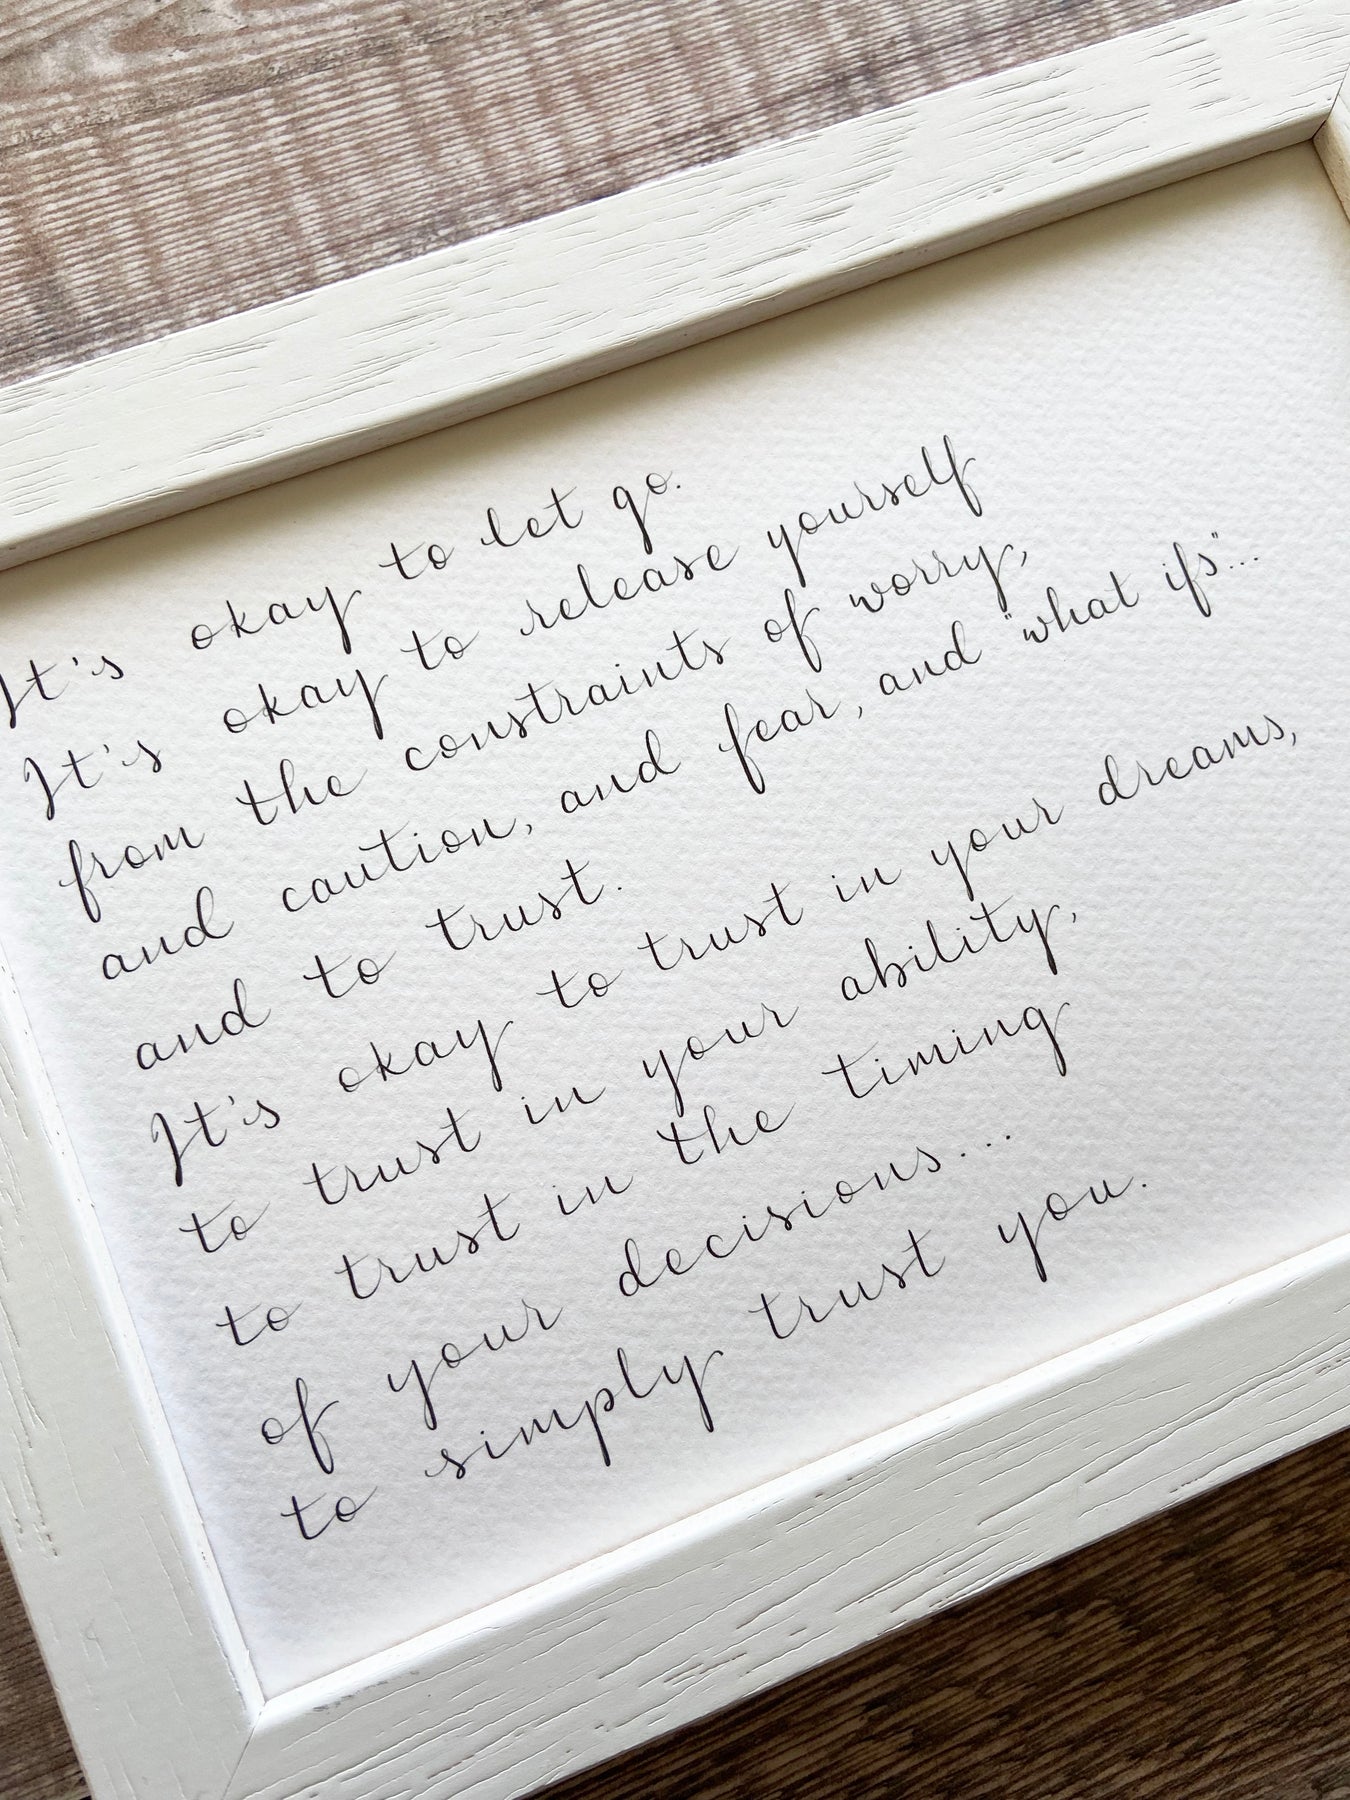 It's okay to let go.
It's okay to release yourself
from the constraints of worry,
and caution, and fear, and "what ifs"...
and to trust.
It's okay to trust in your dreams,
to trust in your ability,
to trust in the timing
of your decisions...
to simply trust you.